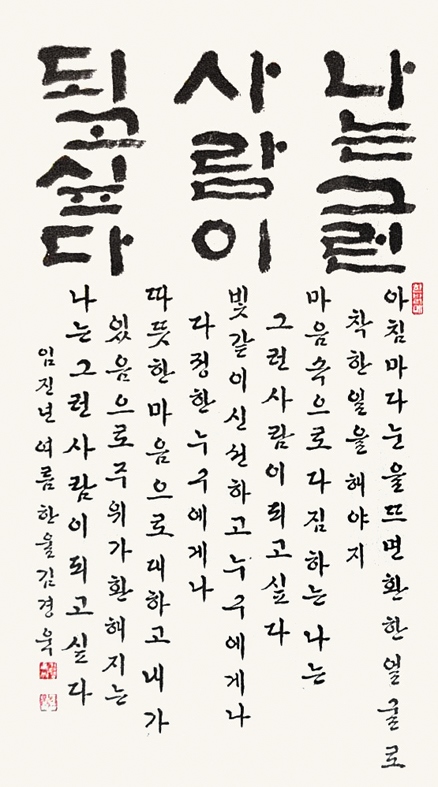 나는그런
사람이
되고싶다
아침마다눈을뜨면환한얼굴로
착한일을해야지
마음속으로다짐하는나는
그런사람이되고싶다
빛같이신선하고누구에게나
다정한누구에게나
따뜻한마음으로대하고내가
있음으로주위가환해지는
나는그런사람이되고싶다
임진년여름한울김경욱